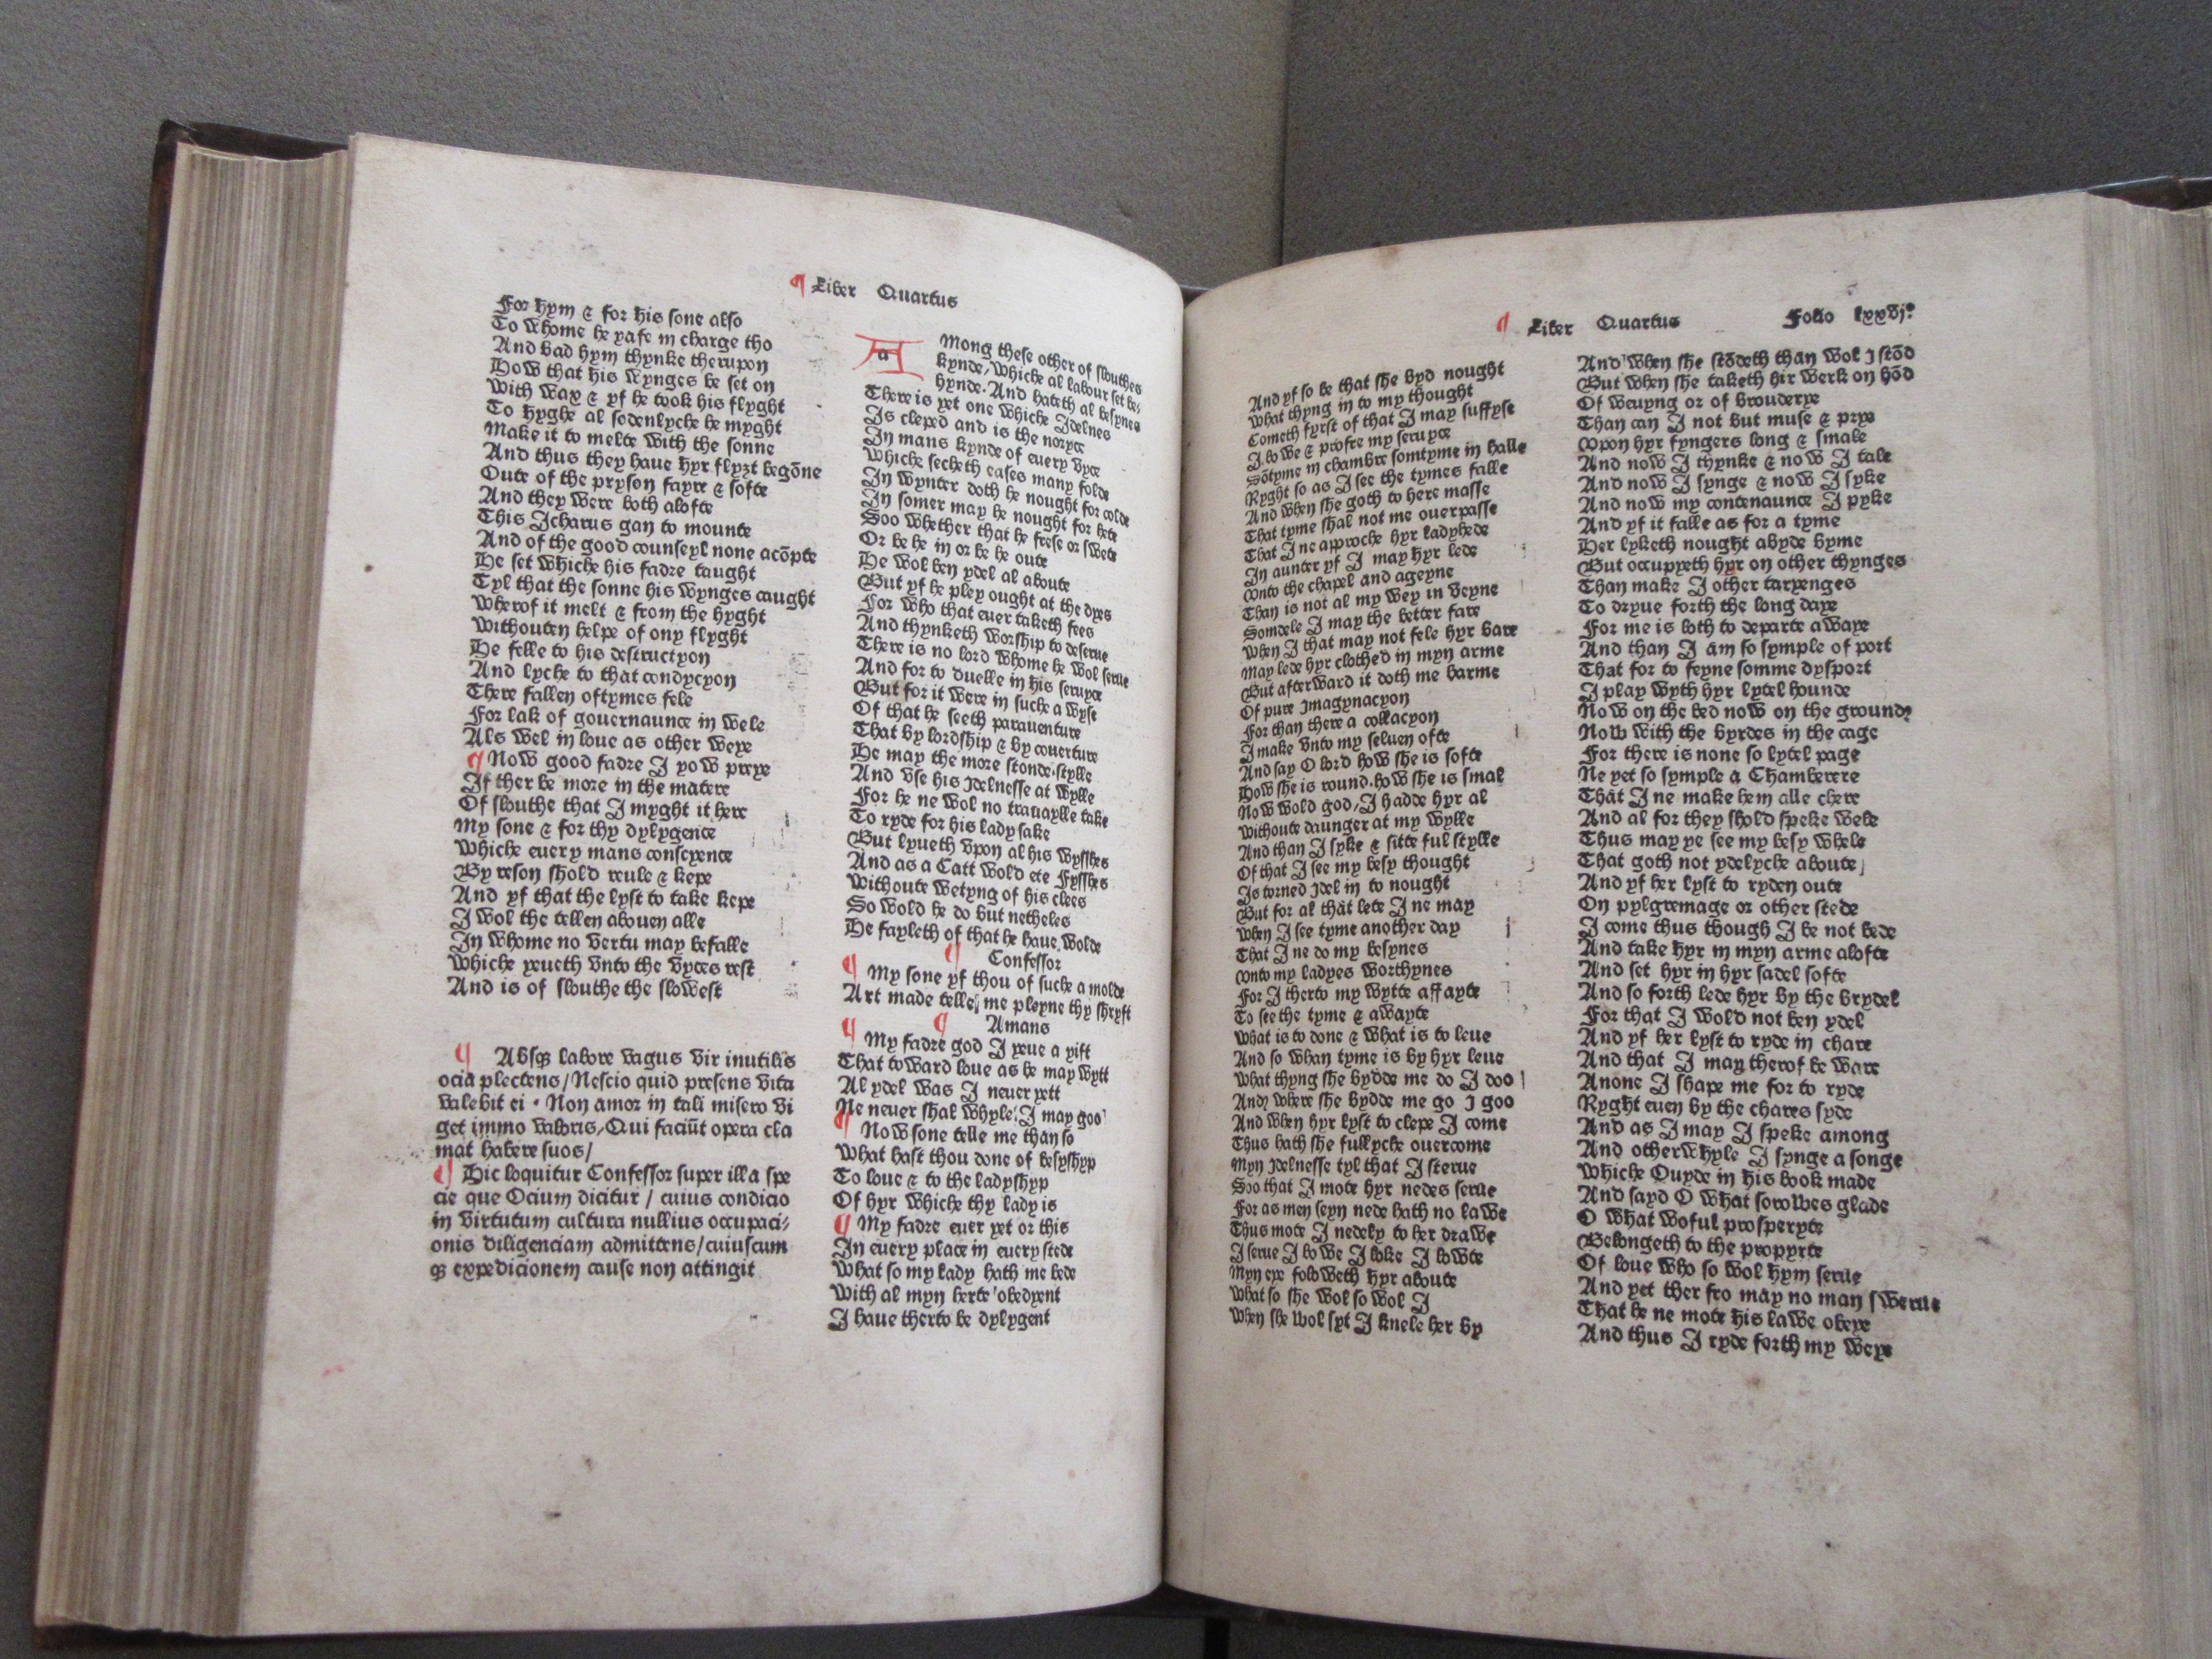 ¶ Liber Quartus
For hym & for his sone also
To whome he yafe in charge tho
And bad hym thynke therupon
How that his wynges be set on
With wax & yf he took his flyght
To hyghe al sodenlyche he myght
Make it to melte with the sonne
And thus they haue hyr flyȝt begōne
Oute of the pryson fayre & softe
And they were both alofte
This Icharus gan to mounte
And of the good counseyl none acōpte
He set whiche his fadre taught
Tyl that the sonne his wynges caught
Wherof it melt & from the hyght
Withouten helpe of ony flyght
He felle to his destructyon
And lyche to that condycyon
There fallen oftymes fele
For lak of gouernaunce in wele
Als wel in loue as other weye
¶ Now good fadre I yow preye
If ther be more in the matere
Of slouthe that I myght it here
My sone & for thy dylygence
Whiche euery mans conscyence
By reson shold reule & kepe
And yf that the lyst to take kepe
I wol the tellen abouen alle
In whome no vertu may befalle
Whiche yeueth vnto the vyces rest
And is of slouthe the slowest
¶ Absqꝫ labore vagus vir inutilis
ocia plectens / Nescio quid presens vita
valebit ei · Non amor in tali misero vi
get immo valoris / Qui faciūt opera cla
mat habere suos /
¶ Hic loquitur Confessor super illa spe
cie que Ocium dicitur / cuius condicio
in virtutum cultura nullius occupaci⸗
onis diligenciam admittens / cuiuscum
qꝫ expedicionem cause non attingit
a Mong these other of slouthes
kynde / whiche al labour set be⸗
hynde · And hateth al besynes
There is yet one whiche Idelnes
Is cleped and is the noryce
In mans kynde of euery vyce
Whiche secheth eases many folde
In wynter doth he nought for colde
In somer may he nought for hete
Soo whether that he frese or swete
Or be he in or be he oute
He wol ben ydel al aboute
But yf he pley ought at the dyes
For who that euer taketh fees
And thynketh worship to deserue
There is no lord whome he wol serue
And for to duelle in his seruyce
But for it were in suche a wyse
Of that he seeth parauenture
That by lordship & by couerture
He may the more stonde stylle
And vse his ydelnesse at wylle
For he ne wol no trauaylle take
To ryde for his lady sake
But lyueth vpon al his wysshes
And as a Catt wold ete Fysshes
Withoute wetyng of his clees
So wold he do but netheles
He fayleth of that he haue wolde
¶ Confessor
¶ My sone yf thou of suche a molde
Art made telle me pleyne thy shryft
¶ Amans
¶ My fadre god I yeue a yift
That toward loue as be may wytt
Al ydel was I neuer yett
Ne neuer shal whyle I may goo
¶ Now sone telle me than so
What hast thou done of besyshyp
To loue & to the ladyshyp
Of hyr whiche thy lady is
¶ My fadre euer yet or this
In euery place in euery stede
What so my lady hath me bede
With al myn herte obedyent
I haue therto be dylygent
¶ Liber Quartus Folio lxxvjº
And yf so be that she byd nought
What thyng in to my thought
Cometh fyrst of that I may suffyse
I bowe & profre my seruyce
Sōtyme in chambre somtyme in halle
Ryght so as I see the tymes falle
And when she goth to here masse
That tyme shal not me ouerpasse
That I ne approche hyr ladyhede
In aunter yf I may hyr lede
Vnto the chapel and ageyne
Than is not al my wey in veyne
Somdele I may the better fare
When I that may not fele hyr bare
May lede hyr clothed in myn arme
But afterward it doth me harme
Of pure ymagynacyon
For than there a collacyon
I make vnto my seluen ofte
And say O lord how she is softe
How she is round · how she is smal
Now wold god / I hadde hyr al
Withoute daunger at my wylle
And than I syke & sitte ful stylle
Of that I see my besy thought
Is torned ydel in to nought
But for al that lete I ne may
When I see tyme another day
That I ne do my besynes
Vnto my ladyes worthynes
For I therto my wytte affayte
To see the tyme & awayte
What is to done & what is to leue
And so whan tyme is by hyr leue
What thyng she bydde me do I doo
And where she bydde me go I goo
And when hyr lyst to clepe I come
Thus hath she fullyche ouercome
Myn ydelnesse tyl that I sterue
Soo that I mote hyr nedes serue
For as men seyn nede hath no lawe
Thus mote I nedely to her drawe
I serue I bowe I loke I lowte
Myn eye foloweth hyr aboute
What so she wol so wol I
When she wol syt I knele her by
And when she stōdeth than wol I stōd
But when she taketh hir werk on hōd
Of weuyng or of brouderye
Than can I not but muse & prye
Vpon hyr fyngers long & smale
And now I thynke & now I tale
And now I synge & now I syke
And now my contenaunce I pyke
And yf it falle as for a tyme
Her lyketh nought abyde byme
But occupyeth hyr on other thynges
Than make I other taryenges
To dryue forth the long daye
For me is loth to departe awaye
And than I am so symple of port
That for to feyne somme dysport
I play wyth hyr lytel hounde
Now on the bed now on the grounde
Now with the byrdes in the cage
For there is none so lytel page
Ne yet so symple a Chamberere
That I ne make hem alle chere
And al for they shold speke wele
Thus may ye see my besy whele
That goth not ydelyche aboute
And yf her lyst to ryden oute
On pylgremage or other stede
I come thus though I be not bede
And take hyr in myn arme alofte
And set hyr in hyr sadel softe
And so forth lede hyr by the brydel
For that I wold not ben ydel
And yf her lyst to ryde in chare
And that I may therof be ware
Anone I shape me for to ryde
Ryght euen by the chares syde
And as I may I speke among
And otherwhyle I synge a songe
Whiche Ouyde in his book made
And sayd O what sorowes glade
O what woful prosperyte
Belongeth to the propyrte
Of loue who so wol hym serue
And yet ther fro may no man swerue
That he ne mote his lawe obeye
And thus I ryde forth my weye